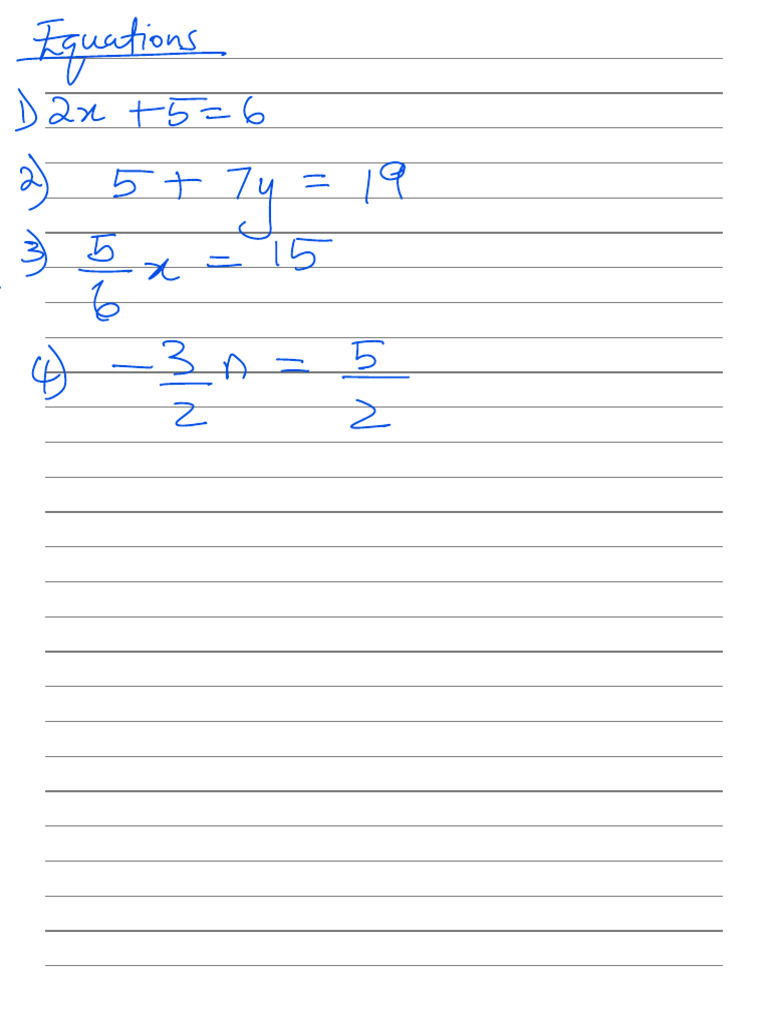 Equations
1) 2x + 5 = 6
2) 5 + 7y = 19
3) 5/6 x = 15
4) - 3/2 n = 5/2